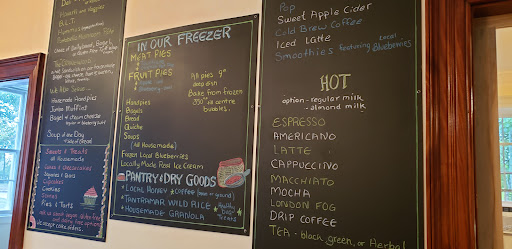 B.L.T.
We Also Serve
Homemade Hand pies
Jumbo Muffins
Bagel & cream cheese
Soup of the Day
Sweets & Treats
all Homemade
Cakes & Cheesecakes
Squares & Bars
Cupcakes
Cookies
Scones
Pies & Tarts
IN OUR FREEZER
MEAT PIES
FRUIT PIES
All pies 9"
deep dish
Bake from frozen
350° till centre
bubbles.
Handpies
Bagels
Bread
Quiche
Soups
(All Housemade)
Frozen Local Blueberries
Locally Made Real Ice Cream
PANTRY & DRY GOODS
LOCAL HONEY COFFEE (bean or ground)
TANTRAMAR WILD RICE
HOUSEMADE GRANOLA
Healthy
DOG
Treats
Pop
Sweet Apple Cider
Cold Brew Coffee
Iced Latte
Smoothies Featuring Local Blueberries
HOT
option - regular milk
- almond milk
ESPRESSO
AMERICANO
LATTE
CAPPUCCINO
MACCHIATO
MOCHA
LONDON FOG
DRIP COFFEE
TEA: black, green, or Herbal